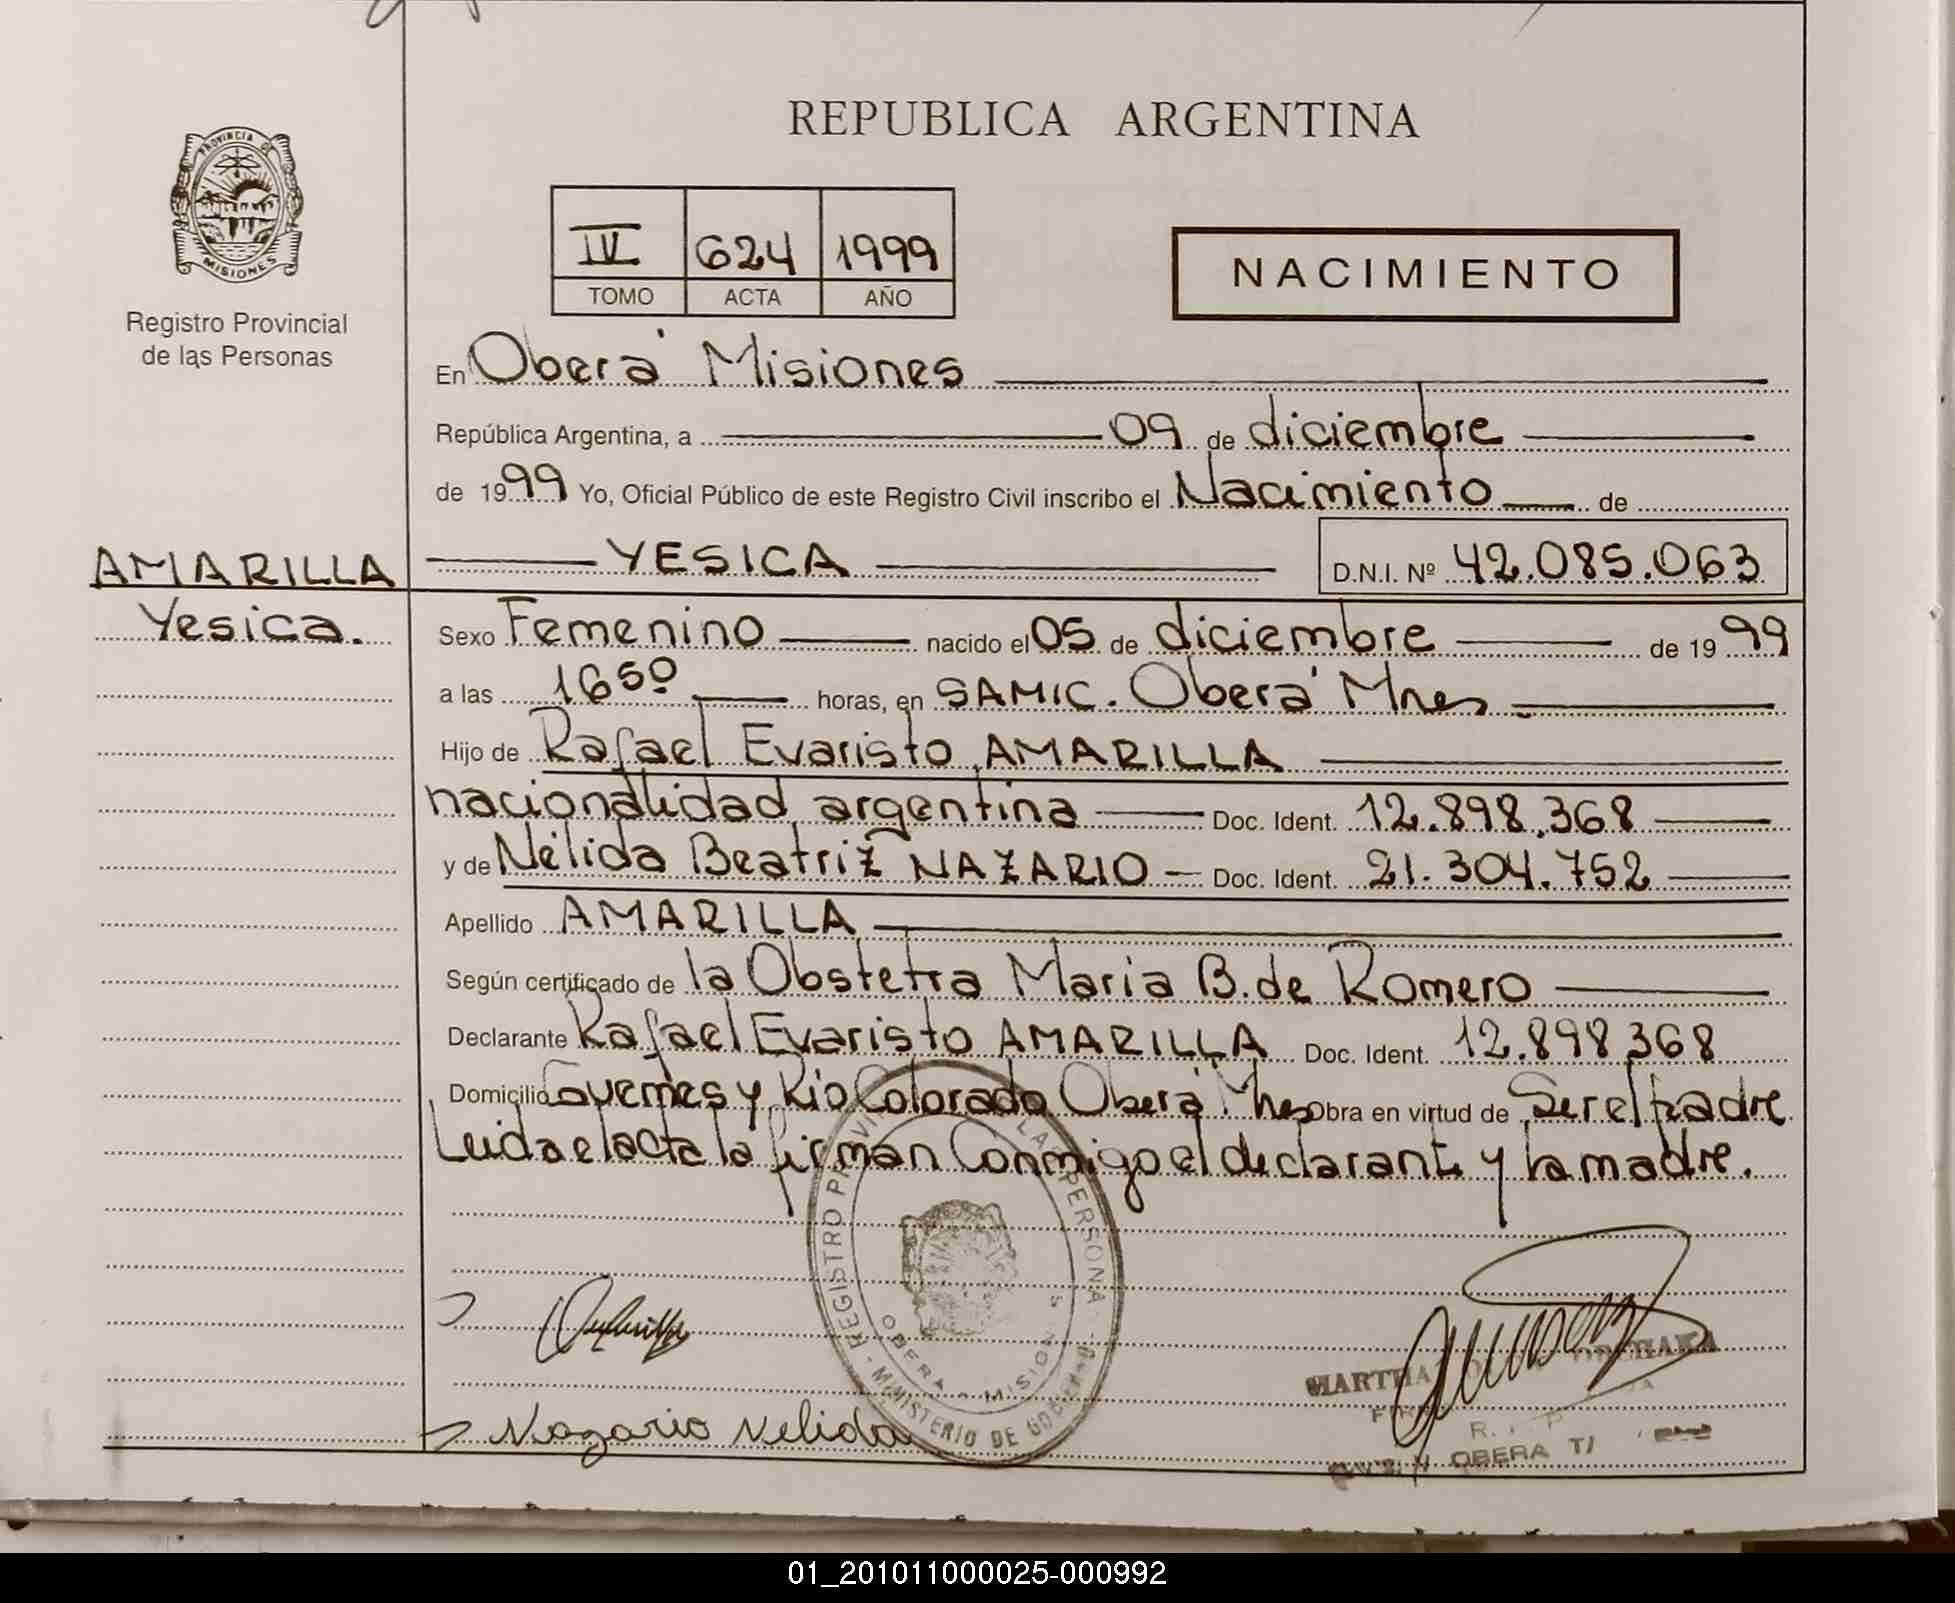 REPUBLICA ARGENTINA
PROVINCIA DE
MISIONES
Registro Provincial
de las Personas
IV 624 1999
TOMO ACTA AÑO
NACIMIENTO
En Oberá Misiones
República Argentina, a 09 de diciembre
de 1999 Yo, Oficial Público de este Registro Civil inscribo el Nacimiento de
AMARILLA
Yesica.
YESICA
D.N.I. Nº 42.085.063
Sexo Femenino nacido el 05 de diciembre de 1999
a las 16 50 horas, en SAMIC. Oberá Mnes
Hijo de Rafael Evaristo AMARILLA
nacionalidad argentina Doc. Ident. 12.898.368
y de Nélida Beatriz NAZARIO Doc. Ident. 21.304.752
Apellido AMARILLA
Según certificado de la Obstetra Maria B. de Romero
Declarante Rafael Evaristo AMARILLA Doc. Ident. 12.898.368
Domicilio Guemes y Río Colorado Oberá Mnes Obra en virtud de Ser el padre
Leida el acta la firman Conmigo el declarante y la madre.
REGISTRO LAS PERSONAS
OBERA - MISIONES
MINISTERIO DE GOBIERNO
Nazario Nelida
MARTHA
OBERA
01_201011000025-000992